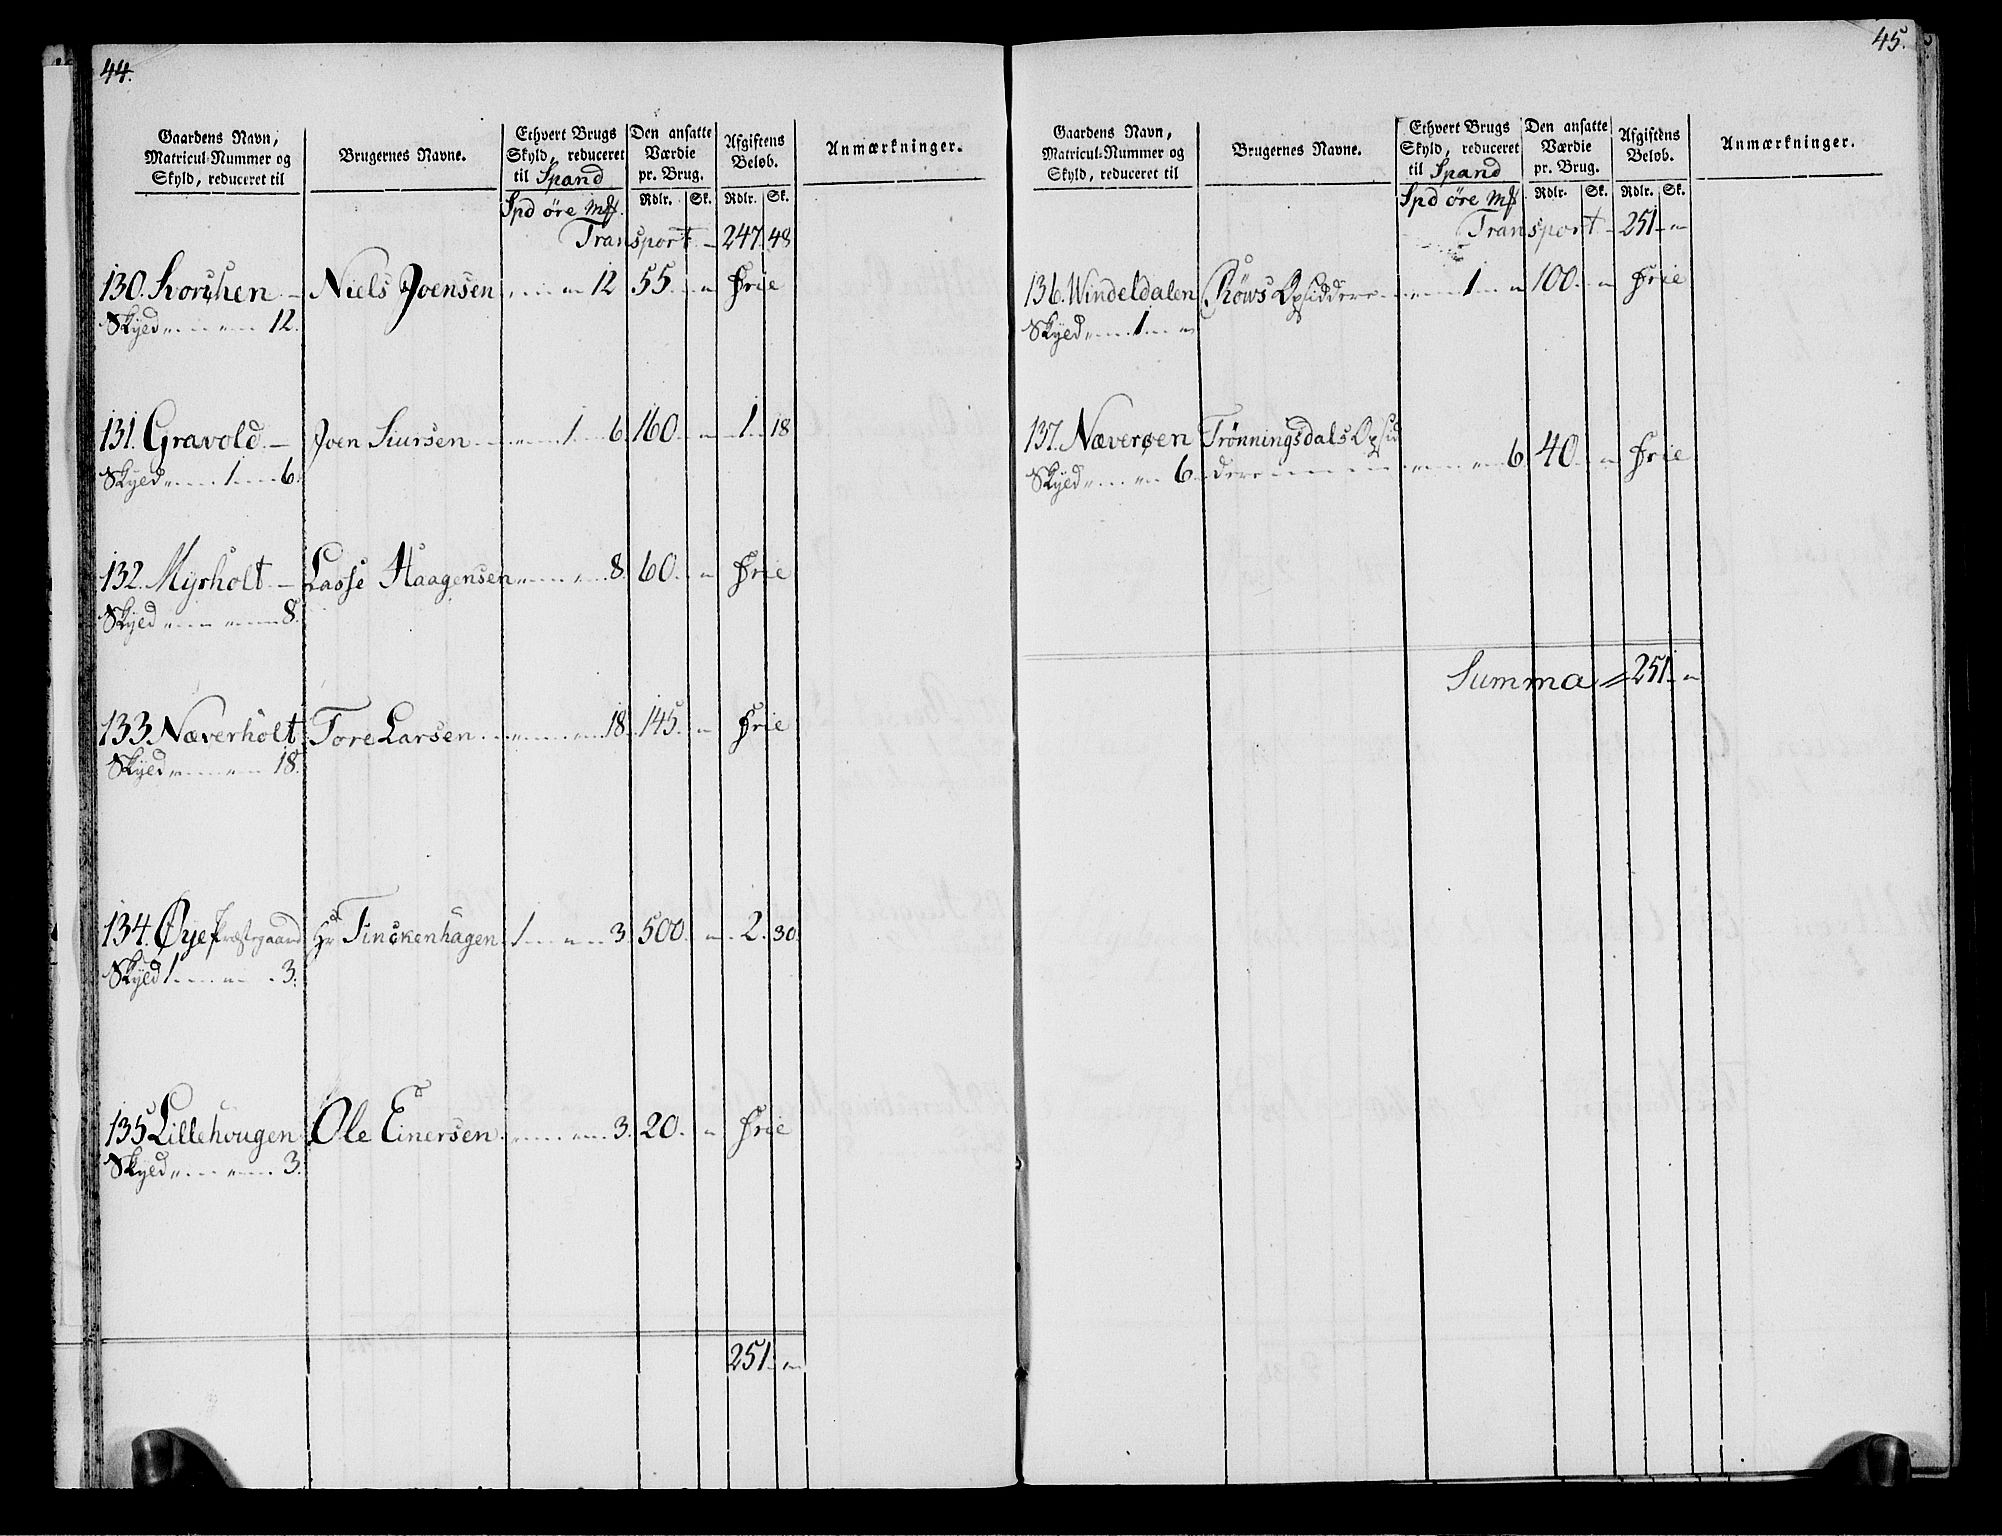 44.
Gaardens Navn, Matricul-Nummer og Skyld, reduceret til
Brugernes Navne.
Ethvert Brugs Skyld, reduceret til Spand
Den ansatte Værdie pr. Brug.
Afgiftens Beløb.
Anmærkninger.
Spd øre mf. Rdlr. Sk. Rdlr. Sk.
Transport - 247. 48
130. Korshen - Niels Joensen 12 55. " frie
Skyld 12.
131. Gravold - Joen Siursen 1 6. 160. " 1. 18
Skyld 1 6.
132. Myrholt - Lasse Haagensen 8. 60. " frie
Skyld 8.
133. Næverholt Tore Larsen 18. 145. " frie
Skyld 18.
134. Øye Præstegaard Hr Tinckenhagen 1 " 3. 500. " 2. 30.
Skyld 1 " 3.
135 Lillehougen Ole Einersen 3. 20. " frie
Skyld 3.
251. "
45.
Gaardens Navn, Matricul-Nummer og Skyld, reduceret til
Brugernes Navne.
Ethvert Brugs Skyld, reduceret til Spand
Den ansatte Værdie pr. Brug.
Afgiftens Beløb.
Anmærkninger.
Spd øre mf Rdlr. Sk. Rdlr. Sk.
Transport - 251 "
136. Windeldalen Røws Opsiddere 1 " 100. " frie
Skyld 1 "
137. Næverøen Trønningsdals Opsid
Skyld 6. dere 6 40. " frie
Summa 251. "